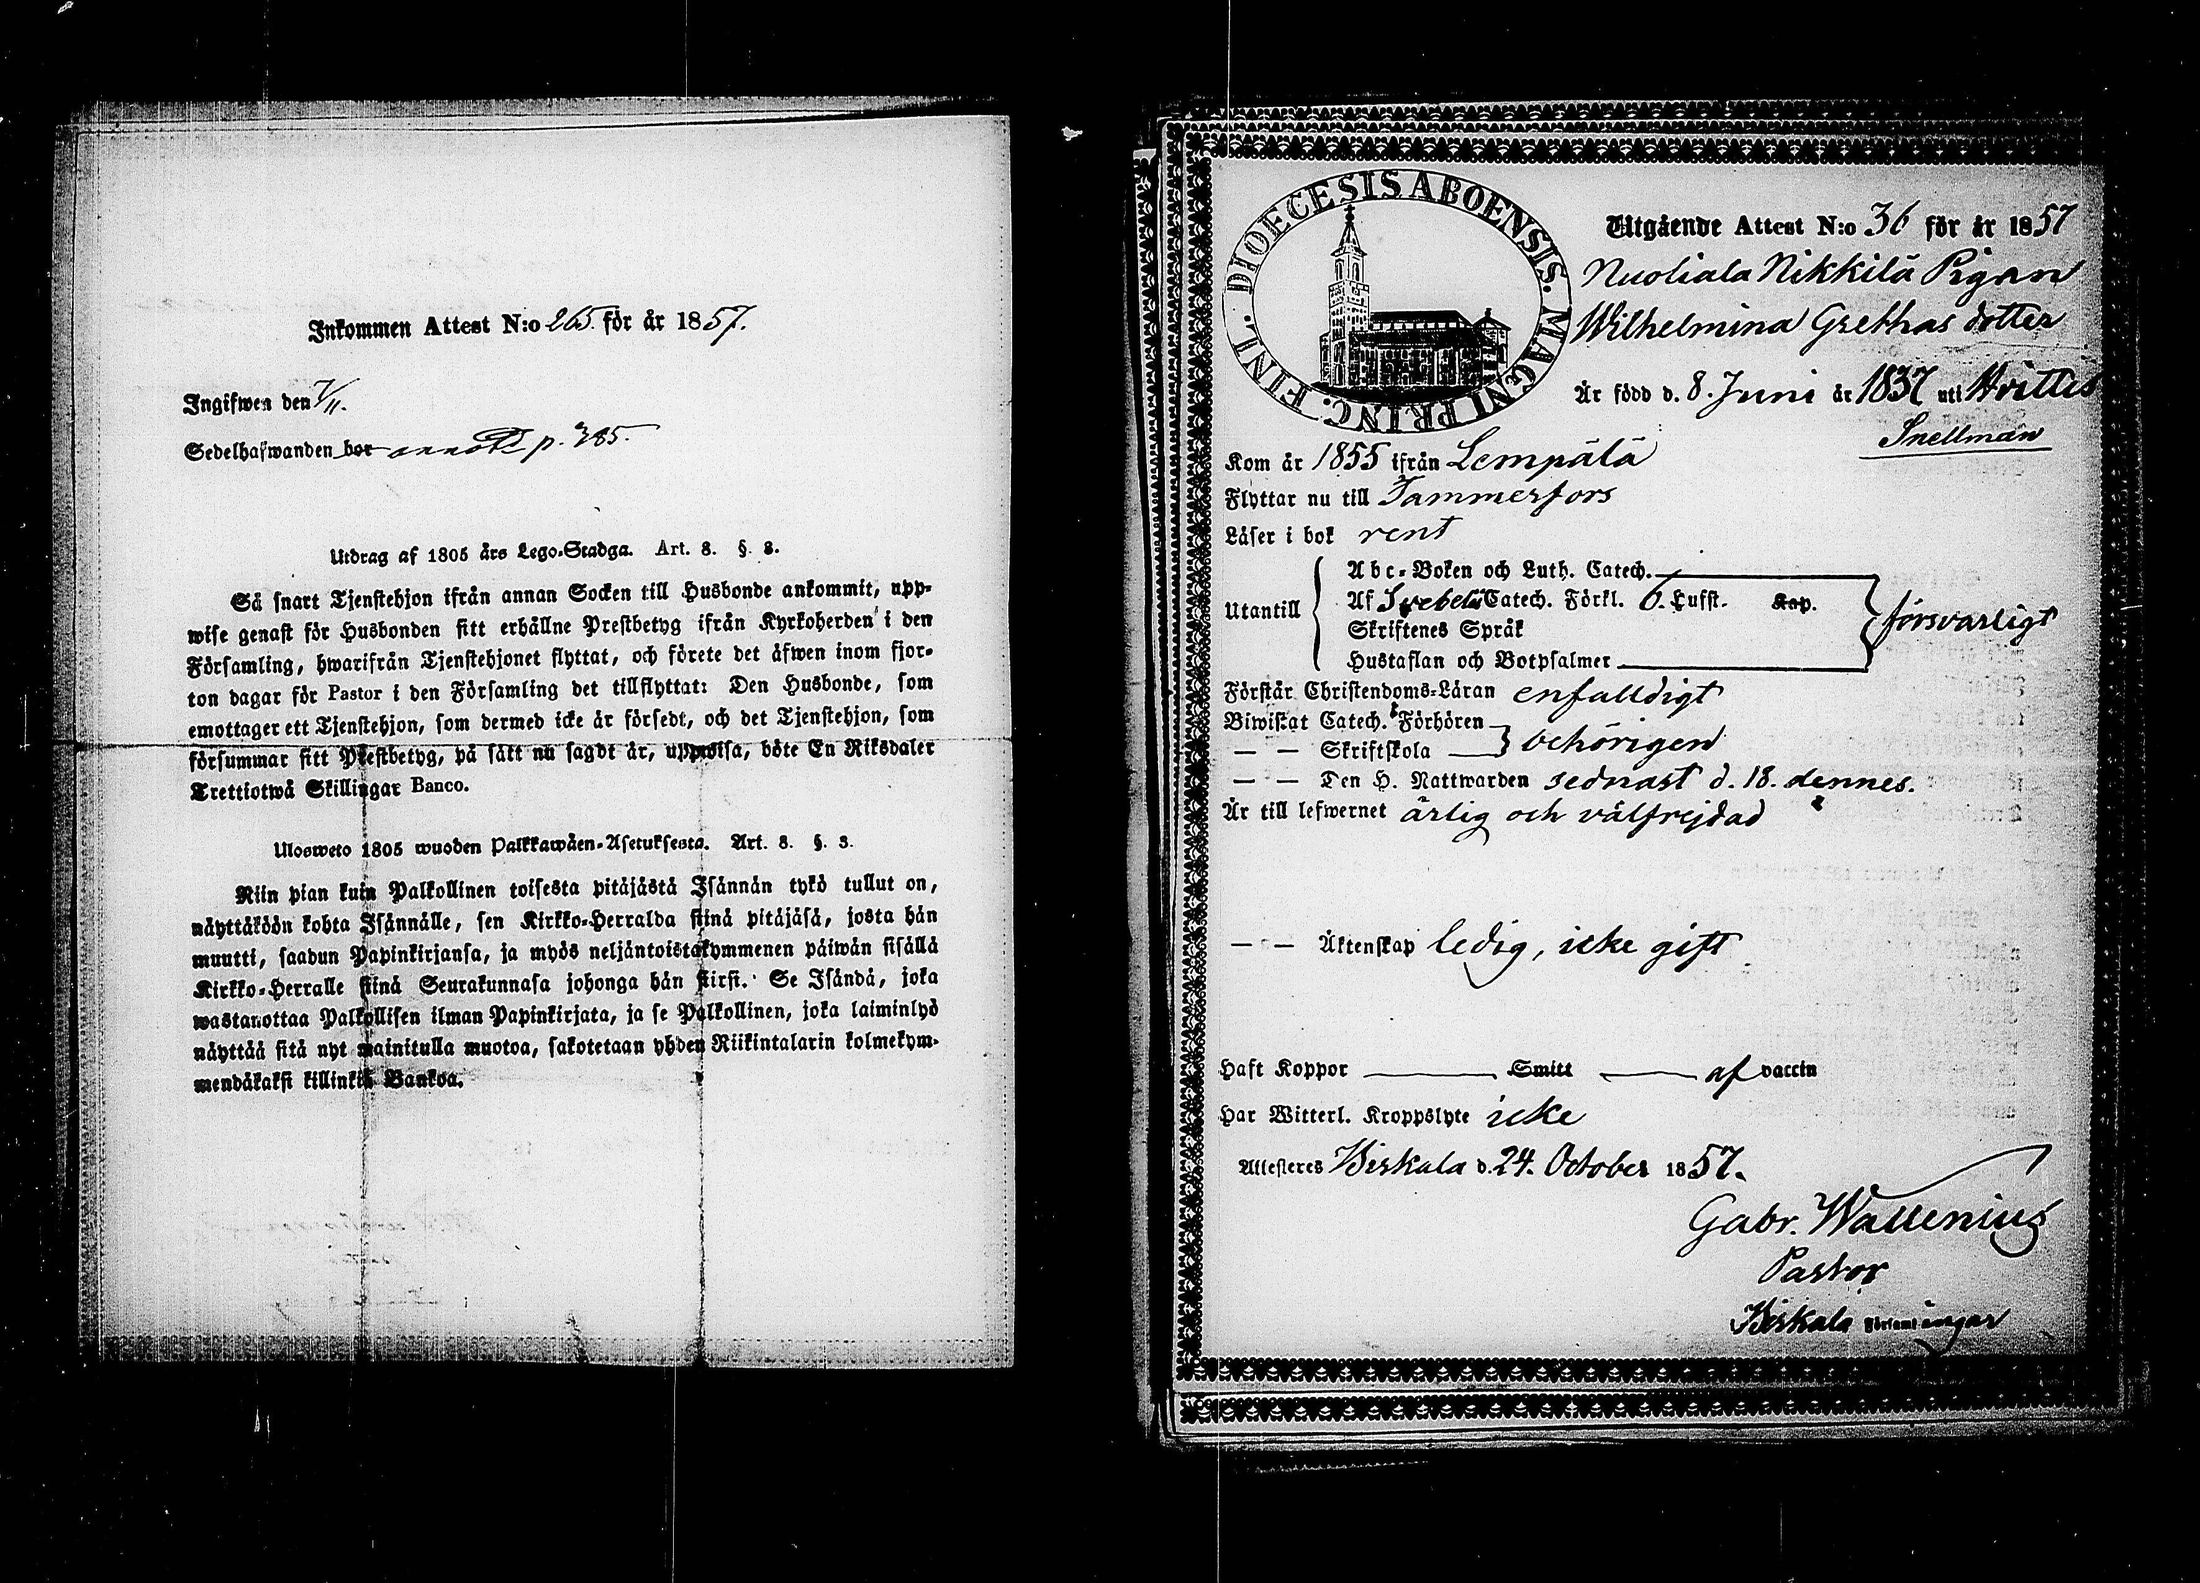 Inkommen Attest N:o 265. för år 1857.
Ingifwen den 7/11.
Sedelhafwanden bor annotd p. 385.
Utdrag af 1805 års Lego-Stadga. Art. 8. §. 3.
Så snart Tjenstehjon ifrån annan Socken till Husbonde ankommit, upp-
wise genast för Husbonden sitt erhållne Prestbetyg ifrån Kyrkoherden i den
Församling, hwarifrån Tjenstehjonet flyttat, och förete det äfwen inom fjor-
ton dagar för Pastor i den Församling det tillflyttat: Den Husbonde, som
emottager ett Tjenstehjon, som dermed icke är försedt, och det Tjenstehjon, som
försummar sitt Prestbetyg, på sätt nu sagdt är, uppwisa, böte En Riksdaler
Trettiotwå Skillingar Banco.
Ulosweto 1805 wuoden Palkkawäen-Asetuksesta. Art. 8. §. 3.
Niin pian kuin Palkollinen toisesta pitäjästä Isännän tykö tullut on,
näyttäköön kohta Isännälle, sen Kirkko-Herralda siinä pitäjäsä, josta hän
muutti, saadun Papinkirjansa, ja myös neljäntoistakymmenen päiwän sisällä
Kirkko-Herralle siinä Seurakunnasa johonga hän siirsi. Se Isändä, joka
wastanottaa Palkollisen ilman Papinkirjata, ja se Palkollinen, joka laiminlyö
näyttää sitä nyt mainitulla muotoa, sakotetaan yhden Riikintalarin kolmekym-
mendäkaksi killinkiä Bankoa.
DIOECESIS ABOENSIS. MAGNI PRINC. FINL.
Utgående Attest N:o 36 för år 1857
Nuoliala Nikkilä Pigan
Wilhelmina Grethas dotter
Är född d. 8. Juni år 1837 uti Hvittis
Snellman
Kom år 1855 ifrån Lempälä
Flyttar nu till Tammerfors
Läser i bok rent
Utantill
Abc-Boken och Luth. Catech.
Af Svebelii Catech. Förkl. 6. Lufst. Kap.
Skriftenes Språk
Hustaflan och Botpsalmer
försvarligt
Förstår Christendoms-Läran enfalldigt
Biwistat Catech. Förhören
— — Skriftskola
behörigen
— — Den H. Nattwarden sednast d. 18. dennes.
Är till lefwernet ärlig och välfrejdad
— — Äktenskap ledig, icke gift
Haft Koppor Smitt af vaccin
Har Witterl. Kroppslyte icke
Attesteres Birkala d. 24. October 1857.
Gabr. Wallenius
Pastor
Birkala Församlingar